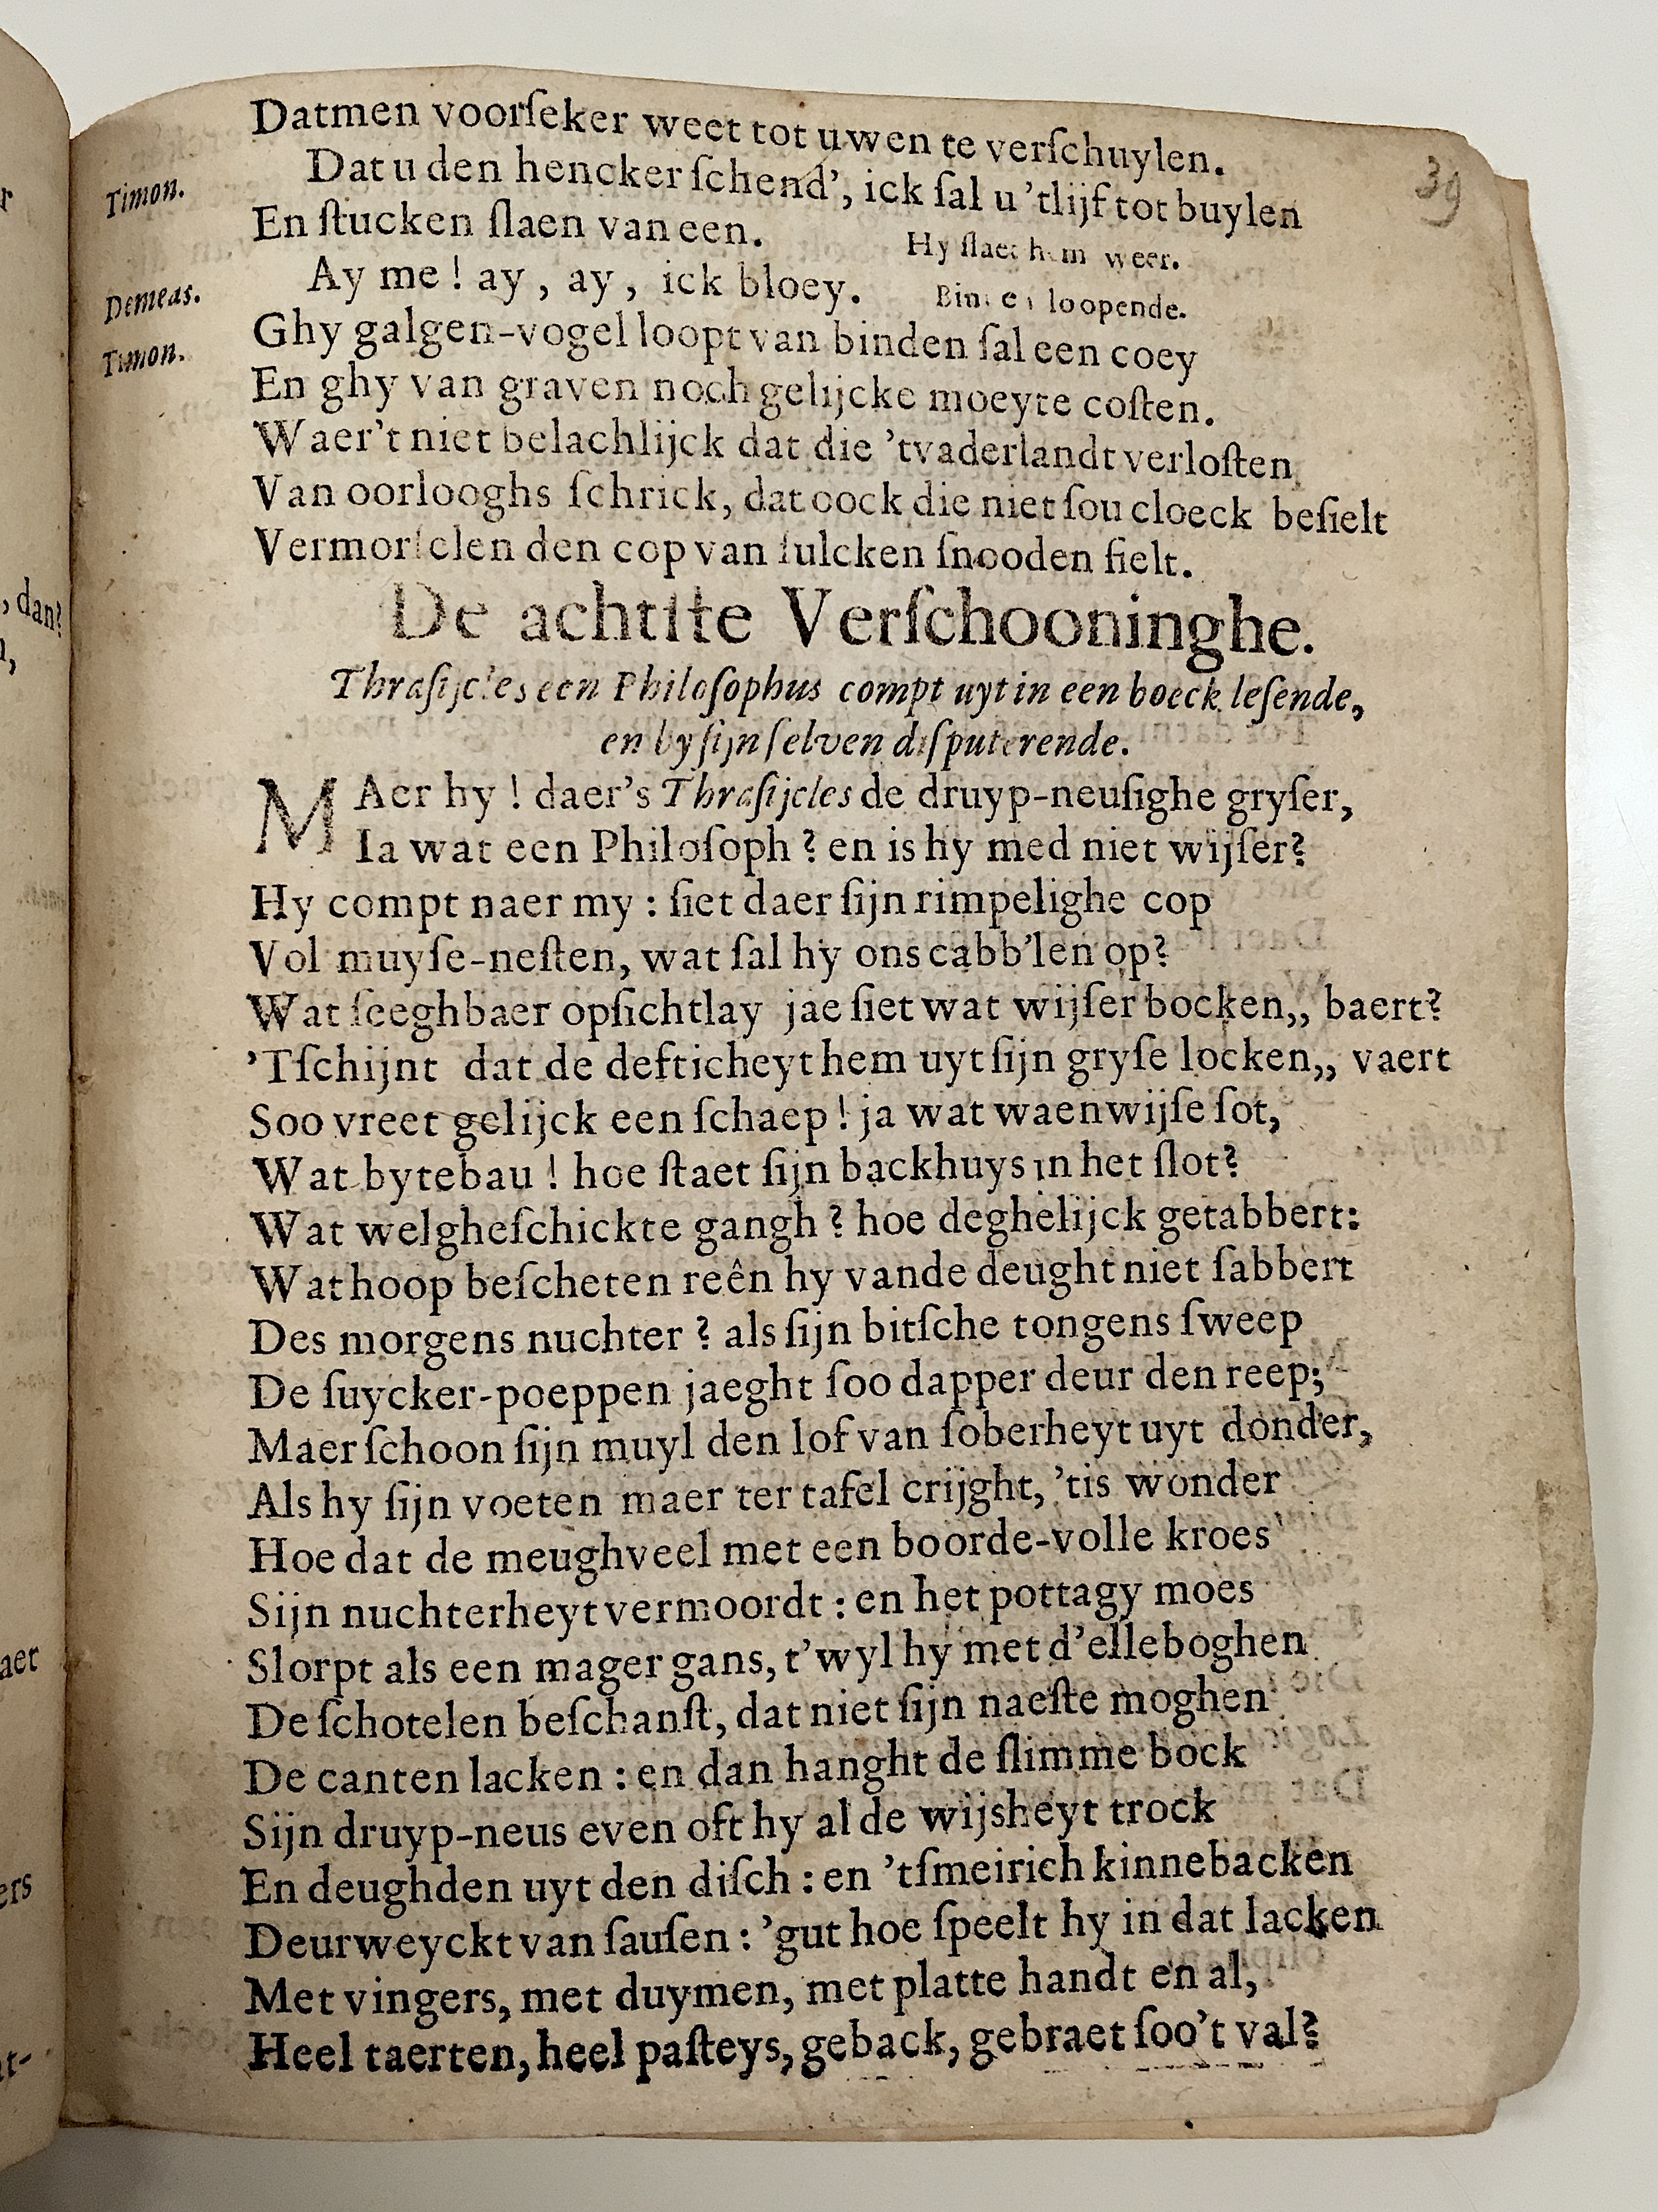 39
Datmen voorſeker weet tot uwen te verſchuylen.
Timon. Dat u den hencker ſchend', ick ſal u 'tlijf tot buylen
En ſtucken ſlaen van een. Hy ſlaet hem weer.
Demeas. Ay me ! ay , ay , ick bloey. loopende.
Timon. Ghy galgen-vogel loopt van binden ſal een coey
En ghy van graven noch gelijcke moeyte coſten.
Waer't niet belachlijck dat die 'tvaderlandt verloſten
Van oorlooghs ſchrick, dat oock die niet ſou cloeck beſielt
Vermorſelen den cop van ſulcken ſnooden fielt.
De achtſte Verſchooninghe.
Thraſijcles een Philoſophus compt uyt in een boeck leſende,
en by ſijn ſelven diſputerende.
MAer hy ! daer's Thraſijcles de druyp-neuſighe gryſer,
Ia wat een Philoſoph ? en is hy med niet wijſer?
Hy compt naer my : ſiet daer ſijn rimpelighe cop
Vol muyſe-neſten, wat ſal hy ons cabb'len op?
Wat ſeeghbaer opſichtlay jae ſiet wat wijſer bocken,, baert?
'Tſchijnt dat de defticheyt hem uyt ſijn gryſe locken,, vaert
Soo vreet gelijck een ſchaep ! ja wat waenwijſe ſot,
Wat bytebau ! hoe ſtaet ſijn backhuys in het ſlot?
Wat welgheſchickte gangh ? hoe deghelijck getabbert:
Wat hoop beſcheten reên hy vande deught niet ſabbert
Des morgens nuchter ? als ſijn bitſche tongens ſweep
De ſuycker-poeppen jaeght ſoo dapper deur den reep;
Maer ſchoon ſijn muyl den lof van ſoberheyt uyt donder,
Als hy ſijn voeten maer ter tafel crijght, 'tis wonder
Hoe dat de meughveel met een boorde-volle kroes
Sijn nuchterheyt vermoordt : en het pottagy moes
Slorpt als een mager gans, t'wyl hy met d'elleboghen
De ſchotelen beſchanſt, dat niet ſijn naeſte moghen
De canten lacken : en dan hanght de ſlimme bock
Sijn druyp-neus even oft hy al de wijsheyt trock
En deughden uyt den diſch : en 'tſmeirich kinnebacken
Deurweyckt van ſauſen : 'gut hoe ſpeelt hy in dat lacken
Met vingers, met duymen, met platte handt en al,
Heel taerten, heel paſteys, geback, gebraet ſoo't val?